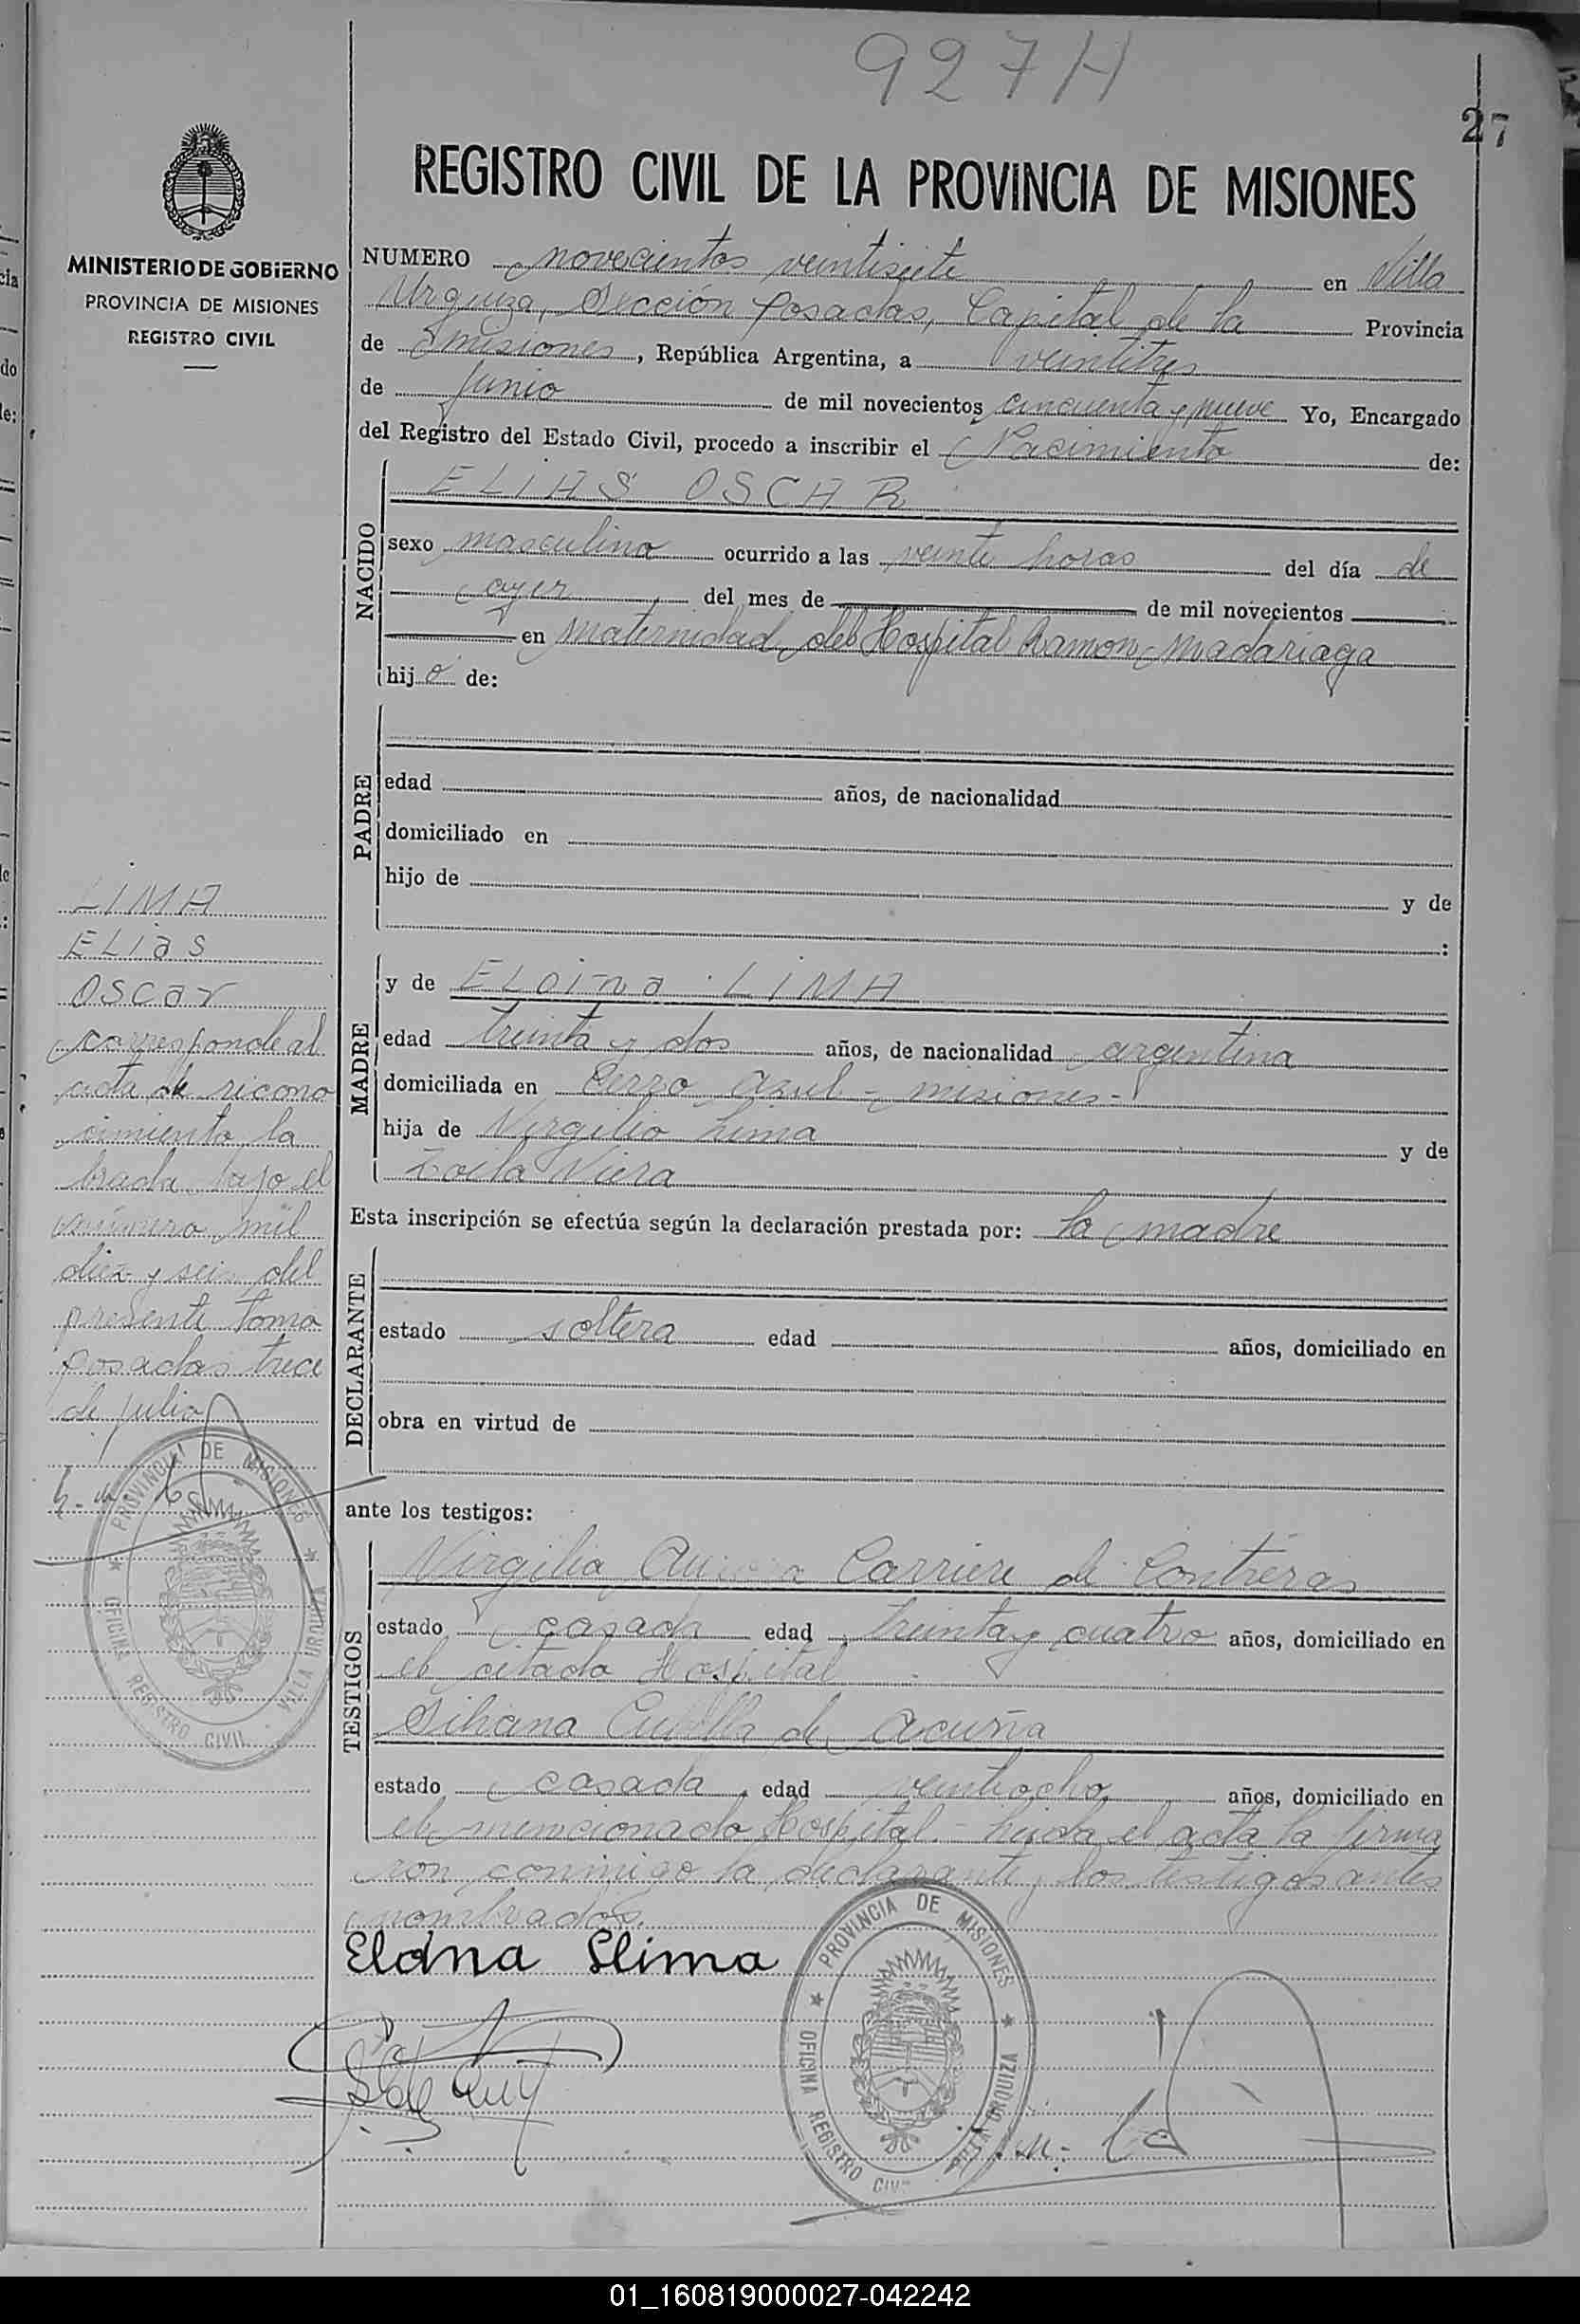 927H
27
REGISTRO CIVIL DE LA PROVINCIA DE MISIONES
MINISTERIO DE GOBIERNO
PROVINCIA DE MISIONES
REGISTRO CIVIL
NUMERO novecientos veintisiete en Villa
Urquiza, Sección Posadas, Capital de la Provincia
de Misiones, República Argentina, a veintitres
de junio de mil novecientos cincuenta y nueve Yo, Encargado
del Registro del Estado Civil, procedo a inscribir el Nacimiento de:
NACIDO
ELIAS OSCAR
sexo masculino ocurrido a las veinte horas del día de
ayer del mes de de mil novecientos
en Maternidad del Hospital Ramon Madariaga
hijo de:
PADRE
edad años, de nacionalidad
domiciliado en
hijo de y de
:
MADRE
y de ELoina LIMA
edad treinta y dos años, de nacionalidad argentina
domiciliada en Cerro Azul - misiones -
hija de Virgilio Lima y de
Zoila Viera
Esta inscripción se efectúa según la declaración prestada por: la madre
DECLARANTE
estado soltera edad años, domiciliado en
obra en virtud de
ante los testigos:
TESTIGOS
Virgilia Carriere de Contreras
estado casada edad treinta y cuatro años, domiciliado en
el citado Hospital
Silvana de Acuña
estado casada, edad veintiocho años, domiciliado en
el mencionado Hospital.- Leida el acta la firma
ron conmigo la declarante y los testigos antes
nombrados.
Eloina Llima
LIMA
ELias
Oscar
corresponde al
acta de recono
cimiento la
brada bajo el
número mil
diez y seis del
presente tomo
Posadas trece
de julio
PROVINCIA DE MISIONES
OFICINA REGISTRO CIVIL VILLA URQUIZA
PROVINCIA DE MISIONES
OFICINA REGISTRO CIVIL VILLA URQUIZA
01_160819000027-042242